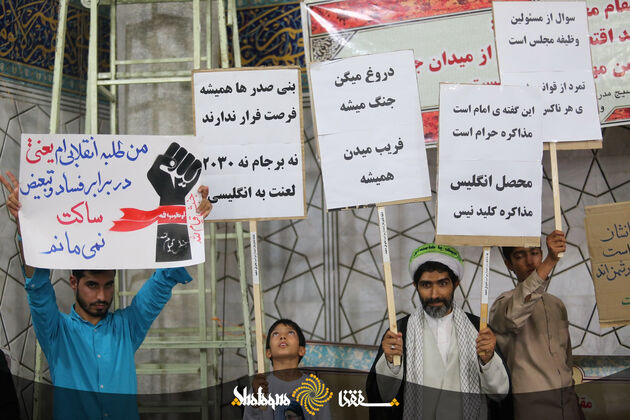 من طلبه انقلابی ام یعنی؛
در برابر فساد و تبعیض
ساکت
نمی مانم
بنی صدر ها همیشه
فرصت فرار ندارند
نه برجام نه ۲۰۳۰
لعنت به انگلیسی
دروغ میگن
جنگ میشه
فریب میدن
همیشه
این گفته ی امام است
مذاکره حرام است
محصل انگلیس
مذاکره کلید نیس
سوال از مسئولین
وظیفه مجلس است
تمرد از قوانین
ی هر ناکس
از میدان
Shabaqna
شفقنا